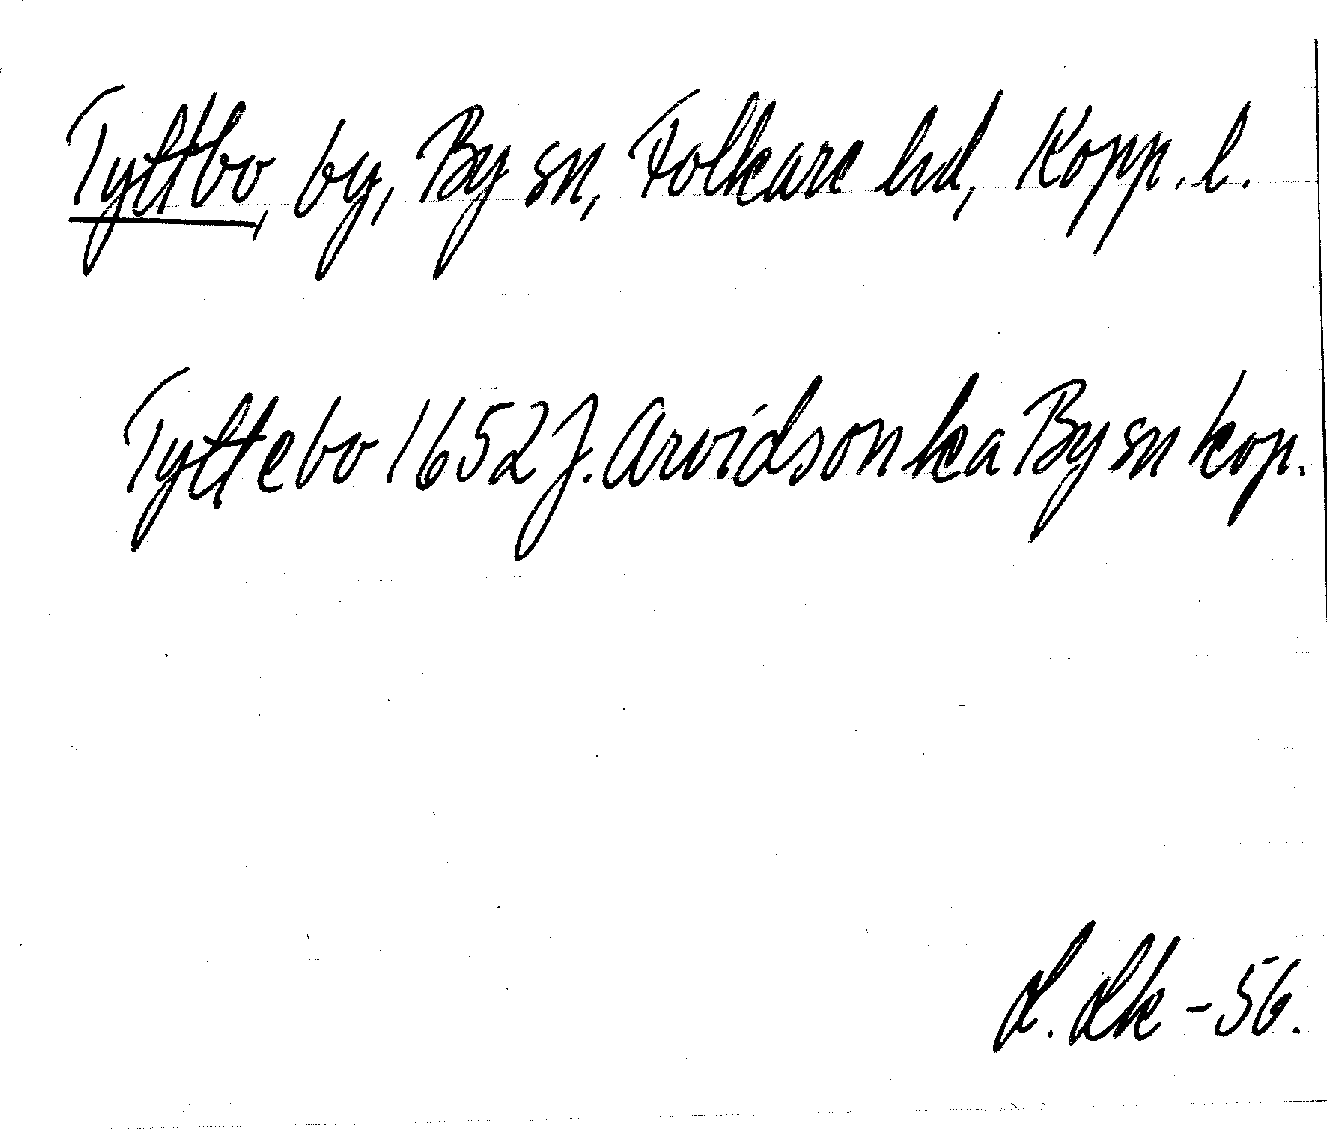 Tyttbo, by, By sn, Folkare hd, Kopp. l.
Tyttebo 1652 J. Arvidson ka By sn kop.
-56.